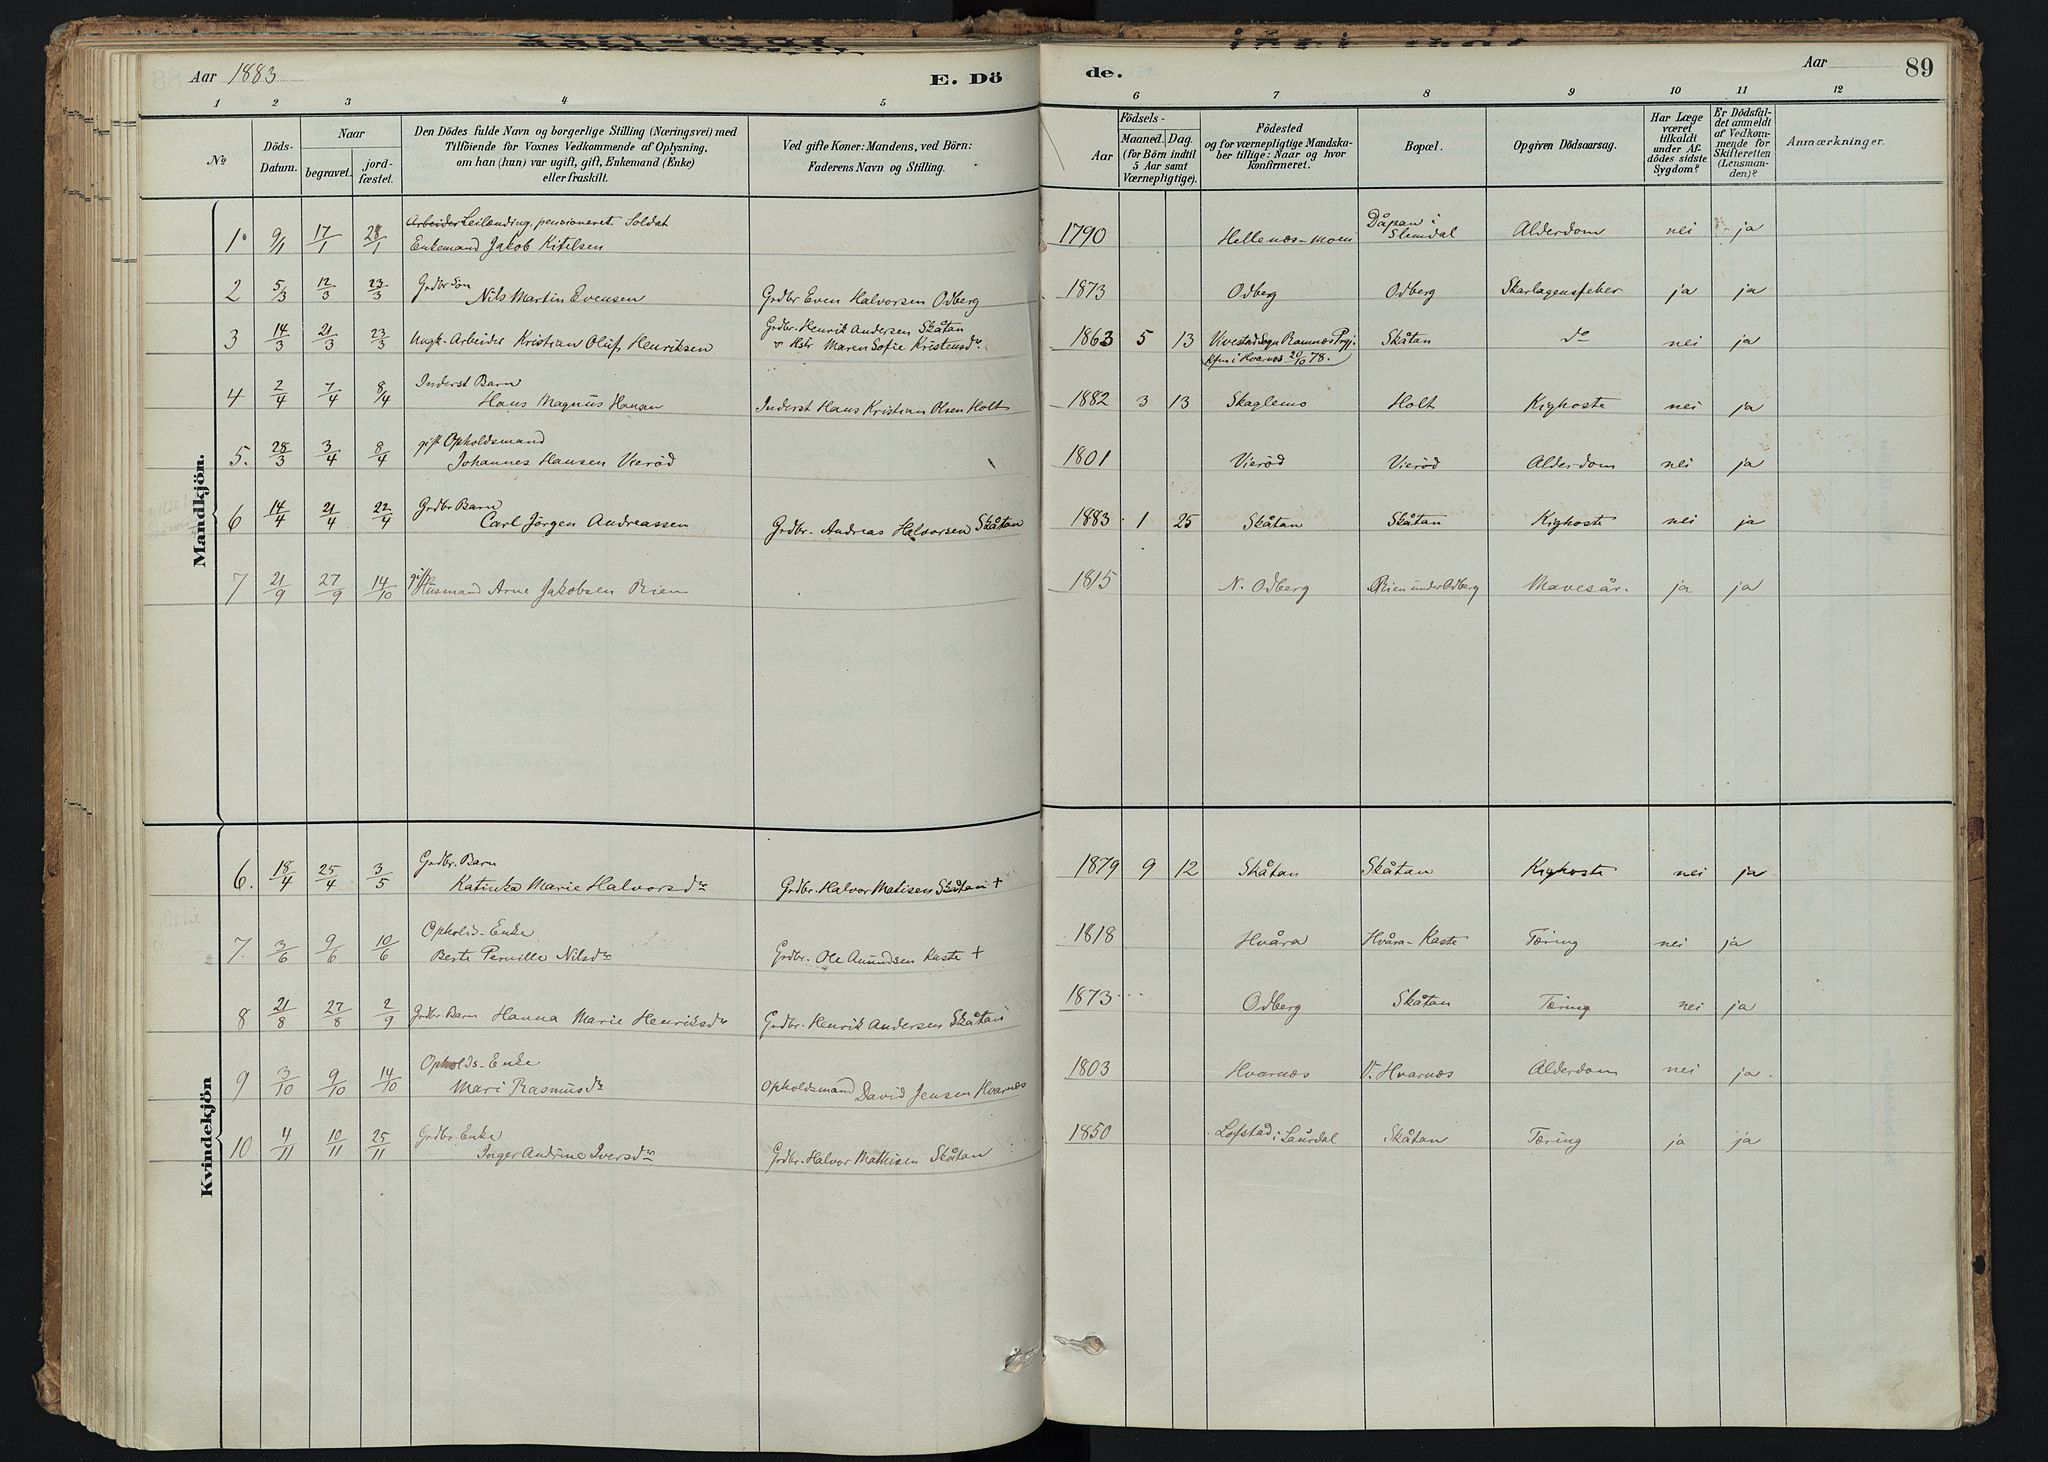 Aar 1883
E. Dö
de.
Aar
89
1 2 3 4 5 6 7 8 9 10 11 12
No
Döds-Datum.
Naar
begravet.
jordfæstet.
Den Dödes fulde Navn og borgerlige Stilling (Næringsvei) med
Tilföiende for Voxnes Vedkommende af Oplysning,
om han (hun) var ugift, gift, Enkemand (Enke)
eller fraskilt.
Ved gifte Koner: Mandens, ved Börn:
Faderens Navn og Stilling.
Födsels-
Aar
Maaned. Dag.
(for Börn indtil
5 Aar samt
Værnepligtige).
Födested
og for værnepligtige Mandska-
ber tillige: Naar og hvor
konfirmeret.
Bopæl.
Opgiven Dödsaarsag.
Har Læge
været
tilkaldt
under Af-
dödes sidste
Sygdom?
Er Dödsfal-
det anmeldt
af Vedkom-
mende for
Skifteretten
(Lensman-
den)?
Anmærkninger.
Mandkjön.
Arbeider Leilending, pensioneret Soldat
1. 9/1 17/1 28/1 Enkemand Jakob Kitilsen 1790 Hellenæs-Moen Dåpan i Slemdal Alderdom nei ja
Grdbr Søn
2 5/3 12/3 23/3 Nils Martin Evensen Grdbr Even Halvorsen Odberg 1873 Odberg Odberg Skarlagensfeber ja ja
Grdbr. Henrik Andersen Skåtan
3 14/3 21/3 23/3 Ungk. Arbeider Kristian Oluf Henriksen & Hstr Maren Sofie Kristensdr 1863 5 13 Vivestad Sogn Ramnæs Prgj. Skåtan do nei ja
kfm i Hvarnæs 20/10 78.
Inderst Barn
4 2/4 7/4 8/4 Hans Magnus Hansen Inderst Hans Kristian Olsen Holt 1882 3 13 Skaglemo Holt Kighoste nei ja
gift Opholdsmand
5. 28/3 3/4 8/4 Johannes Hansen Vierød 1801 Vierød Vierød Alderdom nei ja
Grdbr Barn
6 14/4 21/4 22/4 Carl Jörgen Andreassen Grdbr. Andreas Halvorsen Skåtan 1883 1 25 Skåtan Skåtan Kighoste nei ja
gift
7 21/9 27/9 14/10 Husmand Arne Jakobsen Rien 1815 N. Odberg Rien under Odberg Mavesår. ja ja
Kvindekjön
Grdbr. Barn
6. 18/4 25/4 3/5 Katinka Marie Halvorsdr Grdbr. Halvor Matisen Skåtan + 1879 9 12 Skåtan Skåtan Kighoste nei ja
Opholds-Enke
7. 3/6 9/6 10/6 Berte Pernille Nilsdr Grdbr. Ole Amundsen Kaste + 1818 Hvåra Hvåra-Kaste Tæring nei ja
8 21/8 27/8 2/9 Grdbr. Barn Hanna Marie Henriksdr Grdbr. Henrik Andersen Skåtan 1873 Odberg Skåtan Tæring nei ja
Opholds-Enke
9 3/10 9/10 14/10 Mari Rasmusdr Opholdsmand David Jensen Hvarnæs 1803 Hvarnæs V. Hvarnæs Alderdom nei ja.
Grdbr. Enke
10 4/11 10/11 25/11 Inger Andrine Iversdr Grdbr. Halvor Mathisen Skåtan 1850 Lofstad i Laurdal Skåtan Tæring ja ja